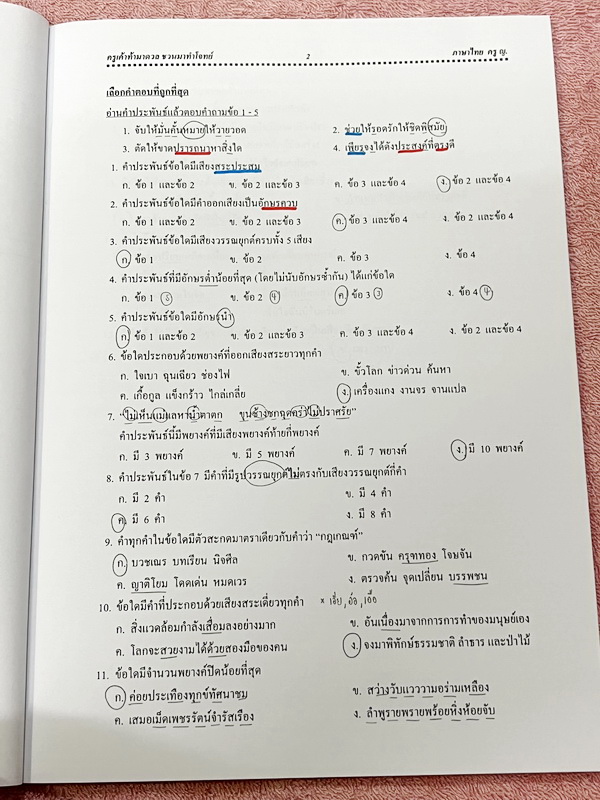 ครูเค้าห้ามาดวล ชวนมาทำโจทย์ 2 ภาษาไทย ครู ญ.
เลือกคำตอบที่ถูกที่สุด
อ่านคำประพันธ์แล้วตอบคำถามข้อ 1 - 5
1. จับให้มั่นคั้นหมายให้วายวอด 2. ช่วยให้รอดรักให้ชิดพิสมัย
3. ตัดให้ขาดปรารถนาหาสิ่งใด 4. เพียรจงได้ดังประสงค์ที่ตรงดี
1. คำประพันธ์ข้อใดมีเสียงสระประสม
ก. ข้อ 1 และข้อ 2 ข. ข้อ 2 และข้อ 3 ค. ข้อ 3 และข้อ 4 ง. ข้อ 2 และข้อ 4
2. คำประพันธ์ข้อใดมีคำออกเสียงเป็นอักษรควบ
ก. ข้อ 1 และข้อ 2 ข. ข้อ 2 และข้อ 3 ค. ข้อ 3 และข้อ 4 ง. ข้อ 2 และข้อ 4
3. คำประพันธ์ข้อใดมีเสียงวรรณยุกต์ครบทั้ง 5 เสียง
ก. ข้อ 1 ข. ข้อ 2 ค. ข้อ 3 ง. ข้อ 4
4. คำประพันธ์ที่มีอักษรต่ำน้อยที่สุด (โดยไม่นับอักษรซ้ำกัน) ได้แก่ข้อใด
ก. ข้อ 1 ข. ข้อ 2 4 ค. ข้อ 3 3 ง. ข้อ 4 4
5. คำประพันธ์ข้อใดมีอักษรนำ
ก. ข้อ 1 และข้อ 2 ข. ข้อ 2 และข้อ 3 ค. ข้อ 3 และข้อ 4 ง. ข้อ 2 และข้อ 4
6. ข้อใดประกอบด้วยพยางค์ที่ออกเสียงสระยาวทุกคำ
ก. ใจเบา ฉุนเฉียว ช่องไฟ ข. ขั้วโลก ข่าวด่วน ค้นหา
ค. เกื้อกูล แข็งกร้าว ไกล่เกลี่ย ง. เครื่องแกง งานจร จานแปล
7. “ไม่เห็นแม่แลหาน้ำตาตก ขุนช้างชกฉุดคร่าไม่ปราศรัย”
คำประพันธ์นี้มีพยางค์ที่มีเสียงพยางค์ท้ายกี่พยางค์
ก. มี 3 พยางค์ ข. มี 5 พยางค์ ค. มี 7 พยางค์ ง. มี 10 พยางค์
8. คำประพันธ์ในข้อ 7 มีคำที่มีรูปวรรณยุกต์ไม่ตรงกับเสียงวรรณยุกต์กี่คำ
ก. มี 2 คำ ข. มี 4 คำ
ค. มี 6 คำ ง. มี 8 คำ
9. คำทุกคำในข้อใดมีตัวสะกดมาตราเดียวกับคำว่า “กฎเกณฑ์”
ก. บวชเณร บทเรียน นิจศีล ข. กวดขัน ครุฑทอง โจษจัน
ค. ญาติโยม โดดเด่น หมดเวร ง. ตรวจค้น จุดเปลี่ยน บรรพชน
10. ข้อใดมีคำที่ประกอบด้วยเสียงสระเดี่ยวทุกคำ
ก. สิ่งแวดล้อมกำลังเสื่อมลงอย่างมาก ข. อันเนื่องมาจากการกระทำของมนุษย์เอง
ค. โลกจะสวยงามได้ด้วยสองมือของคน ง. จงมาพิทักษ์ธรรมชาติ ลำธาร และป่าไม้
11. ข้อใดมีจำนวนพยางค์ปิดน้อยที่สุด
ก. ค่อยประเทืองทุกข์ทัศนาชม ข. สว่างวับแวววามอร่ามเหลือง
ค. เสมอเม็ดเพชรรัตน์จำรัสเรือง ง. ลำพูรายพรายพร้อยหิ่งห้อยจับ